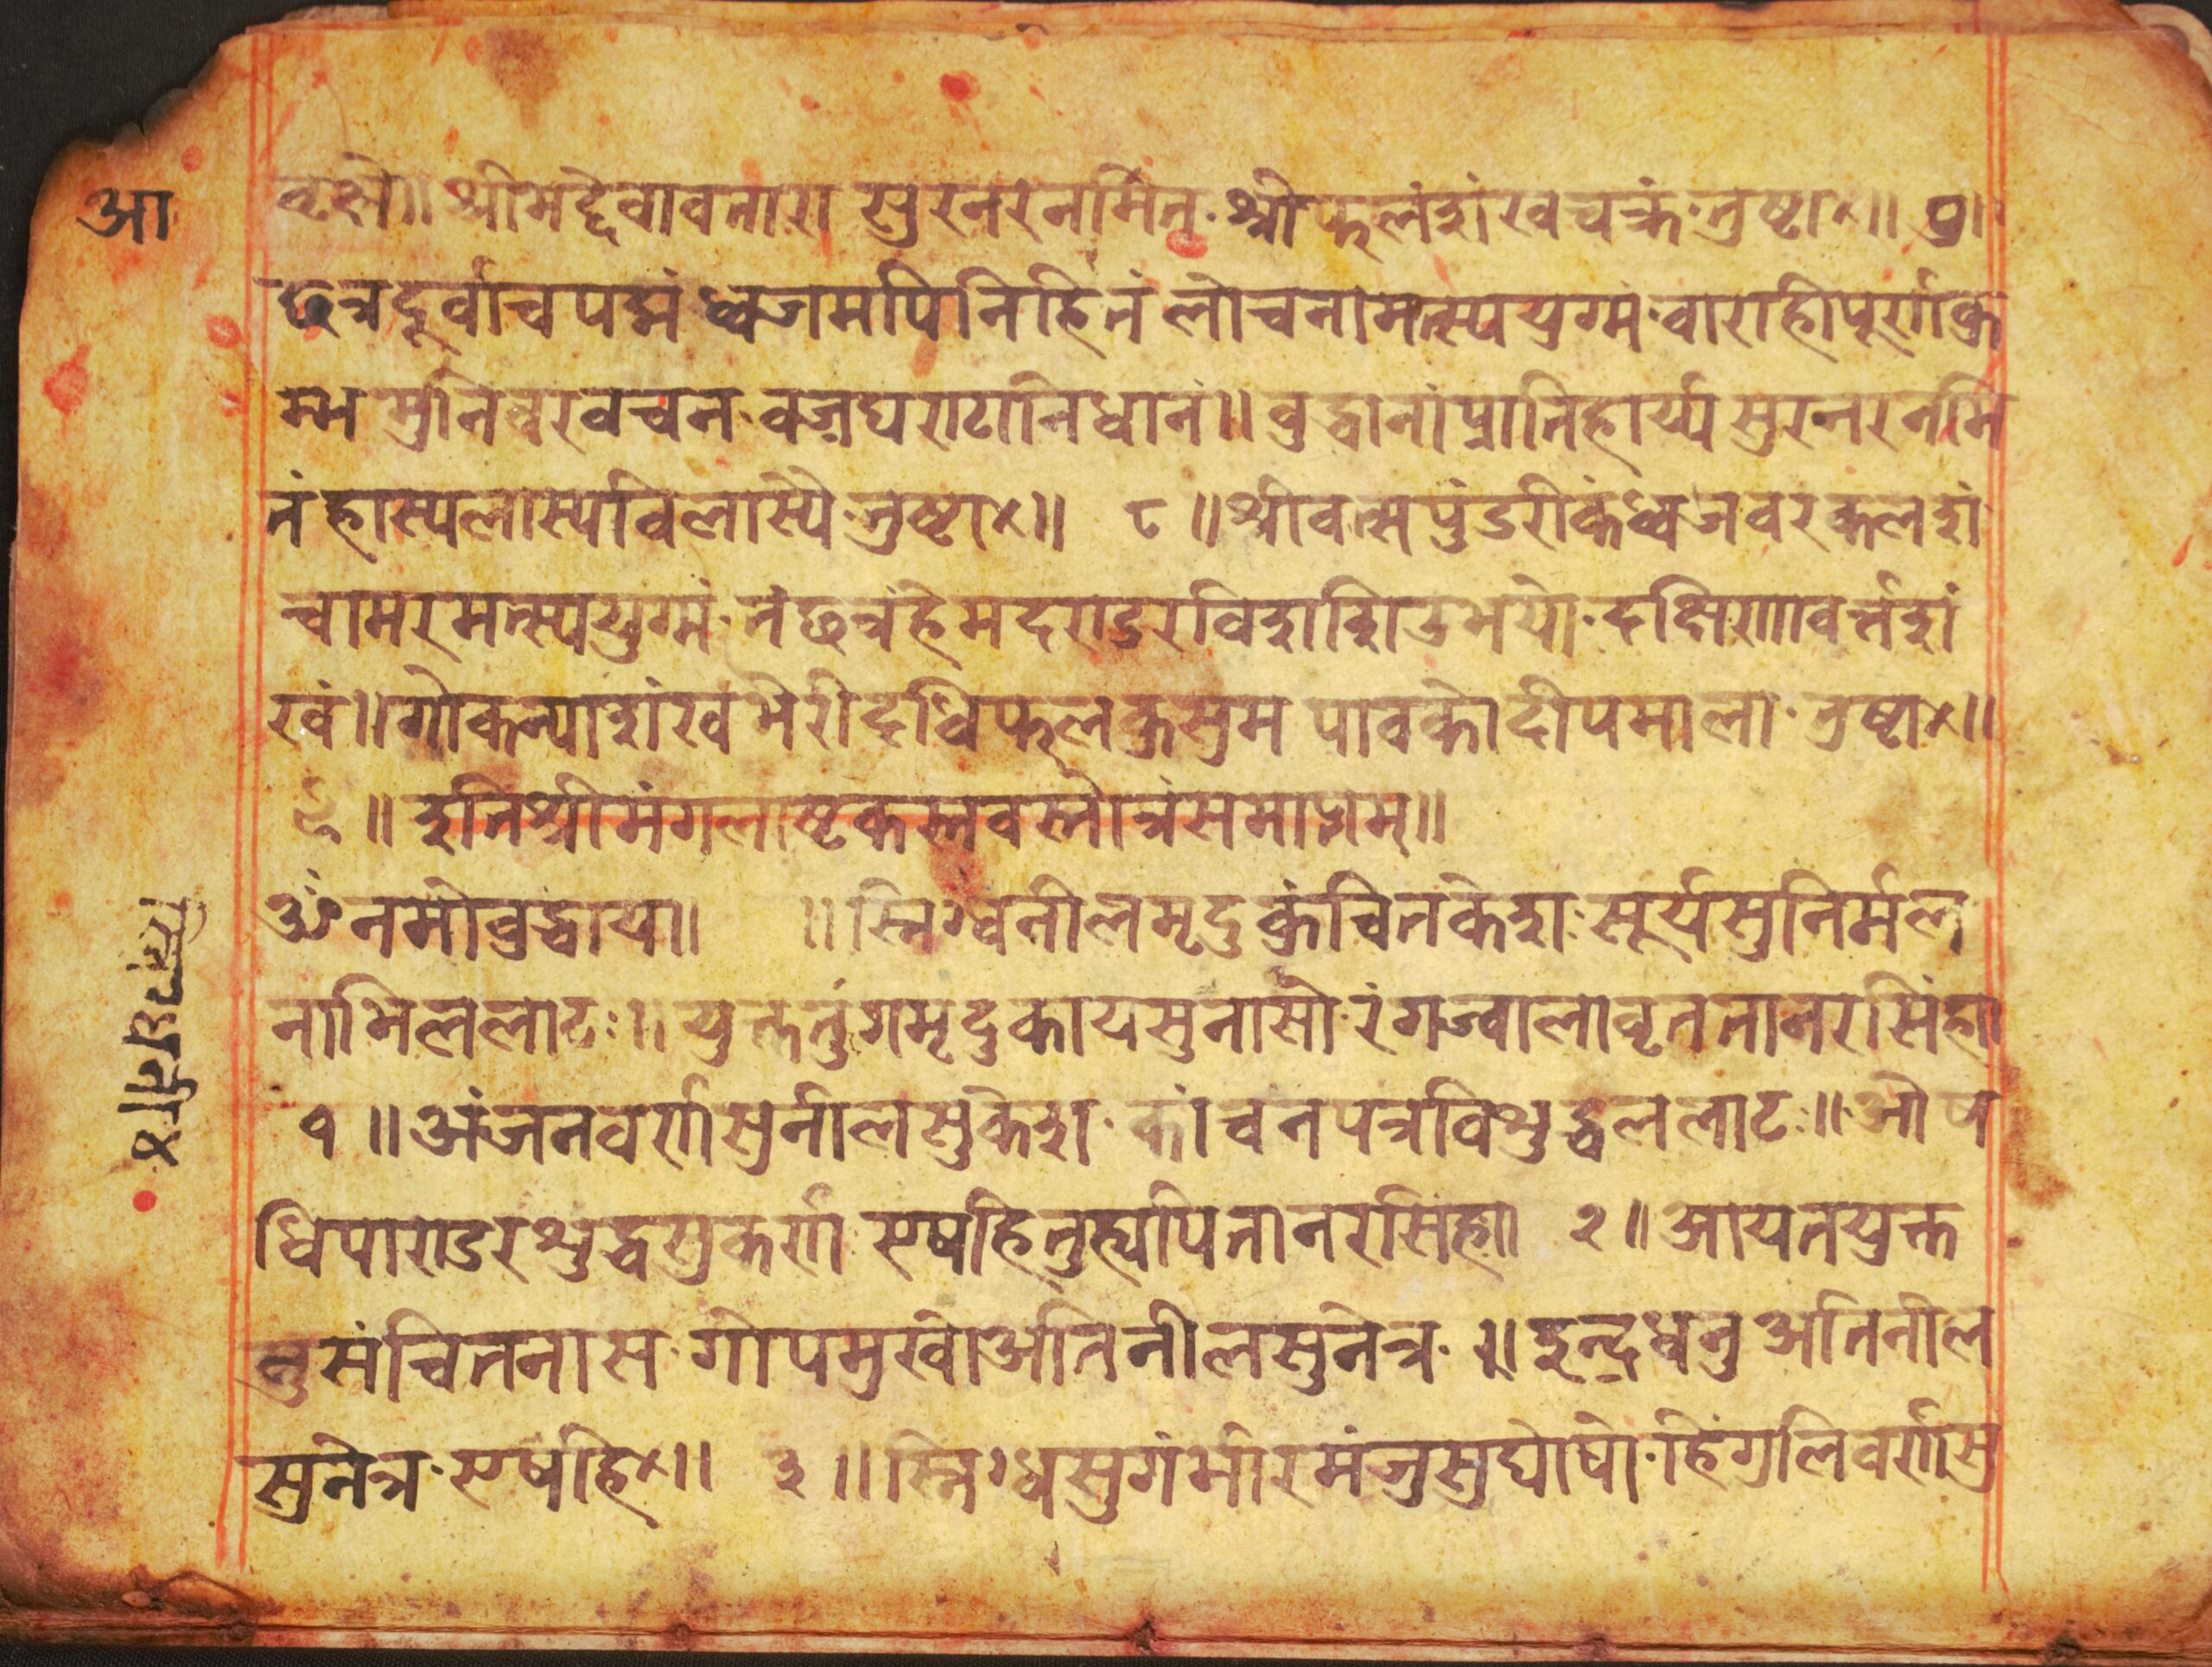 आ
वृक्षे॥ श्रीमद्देवावतारा सुरनरनमित·श्रीफलंशंखचक्रं·तुष्टा×॥ ७।
छत्रदूर्वाचपद्मंध्वजमपिनिहितंलोचनामत्स्ययुग्मं·वाराहीपूर्णकु
म्भमुनिवरवचन·वज्रघराटानिधानं॥ वुद्धानांप्रातिहार्य्यसुरनरनमि
तंहास्यलास्यविलास्यै·तुष्टा×॥ ८ ॥ श्रीवत्सपुंडरीकंध्वजवरकलशं
चामरमत्स्ययुग्मं·तंछत्रंहेमदराडरविशशिउभयो·दक्षिणावर्त्तशं
खं॥ गोकन्याशंखभेरीदधिफलकुसुमपावकोदीपमाला·तुष्टा×॥
९ ॥ इतिश्रीमंगलाष्टकस्तवस्तोत्रंसमाप्तम्॥
ॐनमोवुद्धाय॥ ॥ स्निग्धनीलमृदुकुंचितकेशः सूर्यसुनिर्मल
नाभिललाटः॥ युक्ततुंगमृदुकायसुनासो·रंगज्वालावृततानरसिंहा
१ ॥ अंजनवर्णसुनीलसुकेश·कांचनपत्रविशुद्धललाटः॥ ओष
धिपाराडरशुद्धसुकर्ण·एषहितुह्यपितानरसिंहा २ ॥ आयतयुक्त
सुसंचितनास·गोपमुखोअतिनीलसुनेत्रः॥ इन्द्रधनुअतिनील
सुनेत्र·एषहि×॥ ३ ॥ स्निग्धसुगंभीरमंजुसुघोषो·हिंगुलिवर्णसु